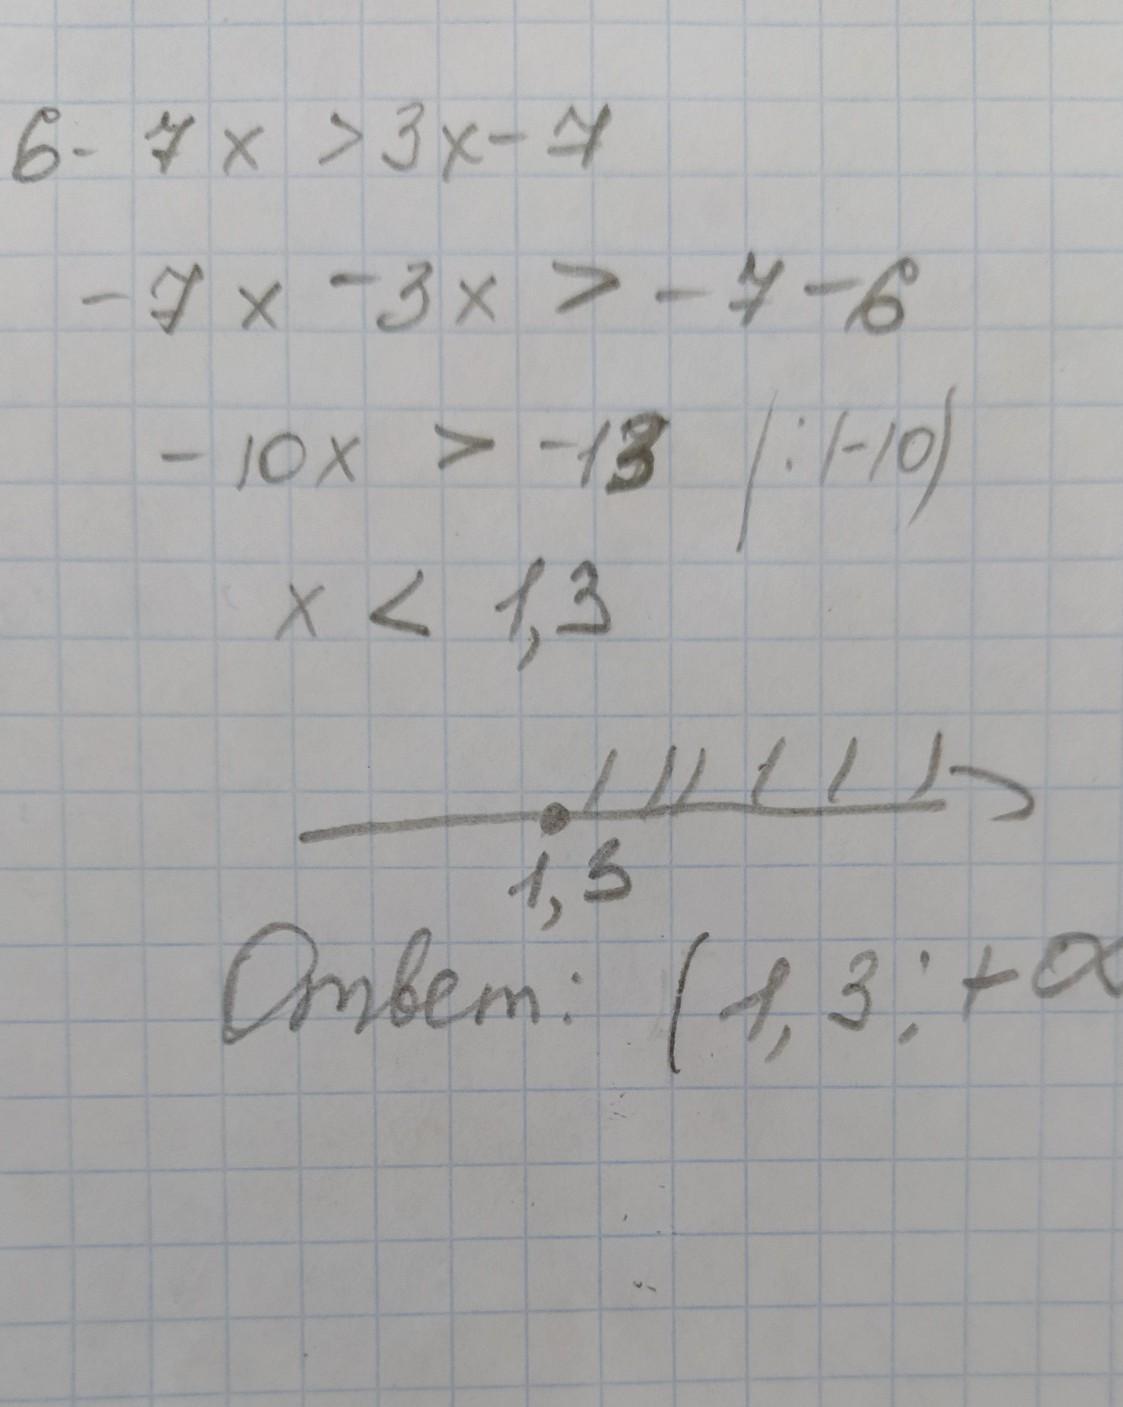 6 - 7x > 3x - 7
-7x - 3x > -7 - 6
-10x > -13 | : (-10)
x < 1,3
1,3
Ответ: (1,3; +∞